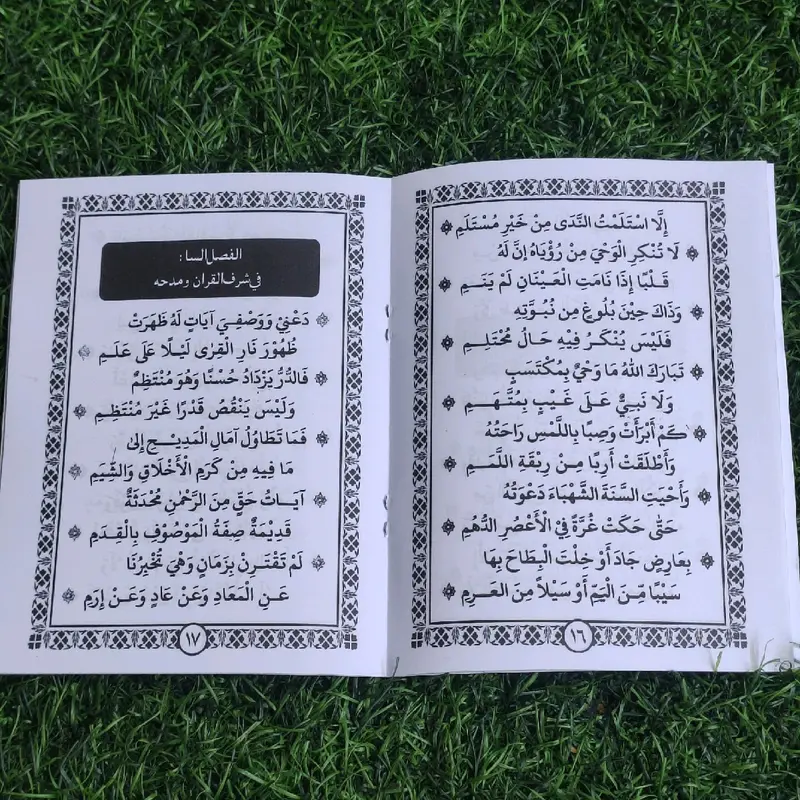 إِلَّا اسْتَلَمْتُ النَّدَى مِنْ خَيْرِ مُسْتَلَمِ
لَا تُنْكِرِ الْوَحْيَ مِنْ رُؤْيَاهُ إِنَّ لَهُ
قَلْبًا إِذَا نَامَتِ الْعَيْنَانِ لَمْ يَنَمِ
وَذَاكَ حِيْنَ بُلُوغٍ مِن نُبُوَّتِهِ
فَلَيْسَ يُنْكَرُ فِيْهِ حَالُ مُحْتَلِمِ
تَبَارَكَ اللهُ مَا وَحْيٌ بِمُكْتَسَبٍ
وَلَا نَبِيٌّ عَلَى غَيْبٍ بِمُتَّهَمِ
كَمْ أَبْرَأَتْ وَصِبًا بِاللَّمْسِ رَاحَتُهُ
وَأَطْلَقَتْ أَرِبًا مِنْ رِبْقَةِ اللَّمَمِ
وَأَحْيَتِ السَّنَةَ الشَّهْبَاءَ دَعْوَتُهُ
حَتَّى حَكَتْ غُرَّةً فِيْ الْأَعْصُرِ الدُّهُمِ
بِعَارِضٍ جَادَ أَوْ خِلْتَ الْبِطَاحَ بِهَا
سَيْبًا مِّنَ الْيَمِّ أَوْ سَيْلاً مِنَ الْعَرِمِ
١٦
الفصل السا:
في شرف القران ومدحه
دَعْنِيْ وَوَصْفِيَ آيَاتٍ لَهُ ظَهَرَتْ
ظُهُوْرَ نَارِ الْقِرٰى لَيْلًا عَلَى عَلَمِ
فَالدُّرُّ يَزْدَادُ حُسْنًا وَهُوَ مُنْتَظِمٌ
وَلَيْسَ يَنْقُصُ قَدْرًا غَيْرَ مُنْتَظِمِ
فَمَا تَطَاوُلُ آمَالِ الْمَدِيْحِ إِلَى
مَا فِيهِ مِنْ كَرَمِ الْأَخْلَاقِ وَالشِّيَمِ
آيَاتُ حَقٍّ مِنَ الرَّحْمٰنِ مُحْدَثَةٌ
قَدِيْمَةٌ صِفَةُ الْمَوْصُوْفِ بِالْقِدَمِ
لَمْ تَقْتَرِنْ بِزَمَانٍ وَهْيَ تُخْبِرُنَا
عَنِ الْمَعَادِ وَعَنْ عَادٍ وَعَنْ إِرَمِ
١٧